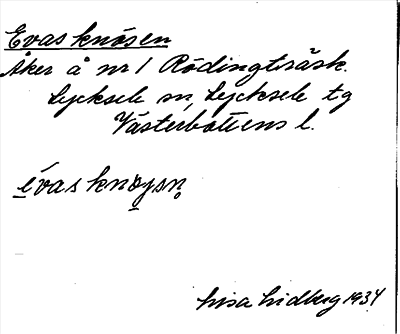 Evas knösen
Åker å nr 1 Rödingträsk.
Lycksele sn, Lycksele tg
Västerbottens l.
évas knøysn̥
Lisa Lidberg 1934